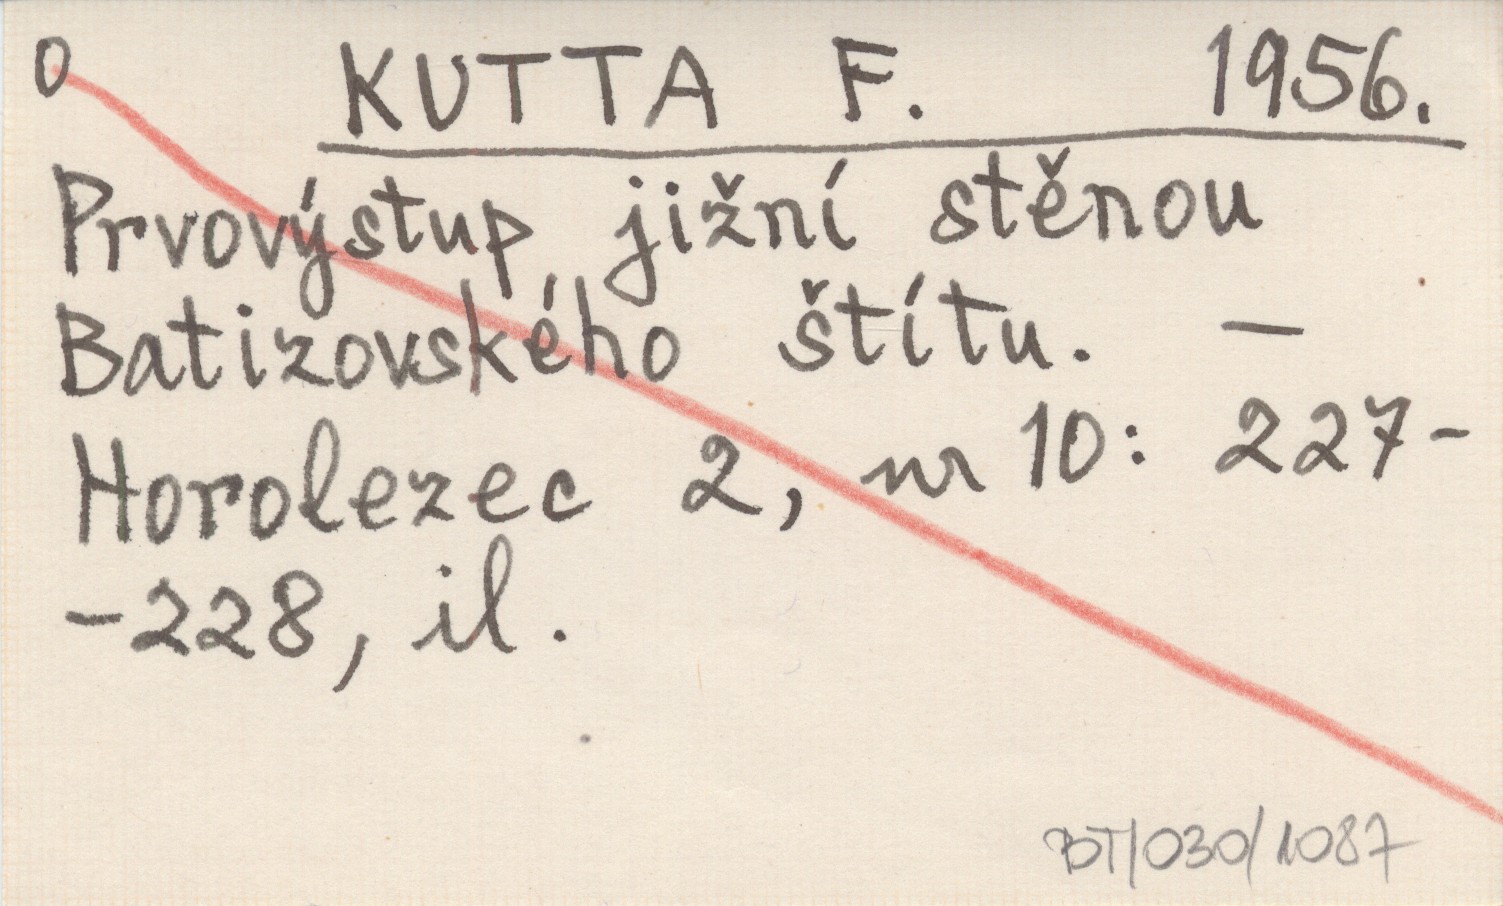 0 KUTTA F. 1956.
Prvovýstup jižní stěnou
Batizovského štítu. —
Horolezec 2, nr 10: 227-
-228, il.
BT/030/1087